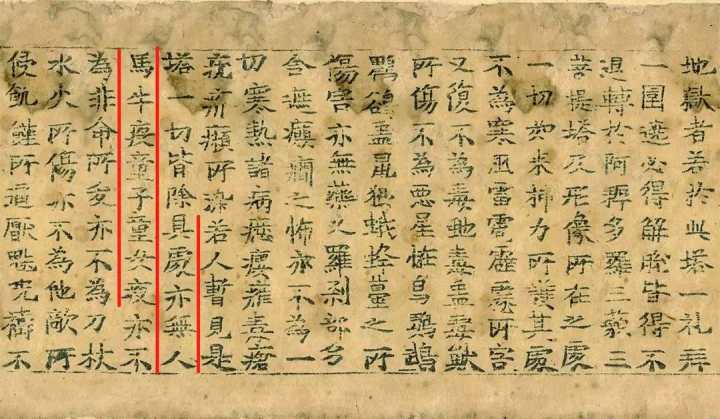 地獄者若於此塔一礼拜
一圍遶必得解脫皆得不
退轉於阿耨多羅三藐三
菩提塔及形像所在之處
一切如來神力所護其處
不為寒風雷雹霹靂所害
又復不為毒虵毒蟲毒獸
所傷不為惡星怪鳥鸚鵡
鸜鵒蟲鼠狼蛾蜂蠆之所
傷害亦無藥叉羅剎部多
舍遮癲癇之怖亦不為一
切寒熱諸病瘻癰毒瘡
疥癩所染若人暫見是
塔一切皆除其處亦無人
馬牛疫童子童女疫亦不
為非命所夭亦不為刀杖
水火所傷亦不為他敵所
侵飢饉所逼厭魅咒禱不